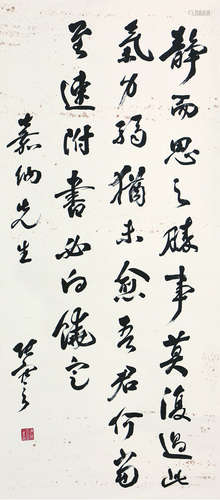 静而思之勝事莫復過此
氣力弱猶未愈吾君何當
至速附書必白饒定
素 先生